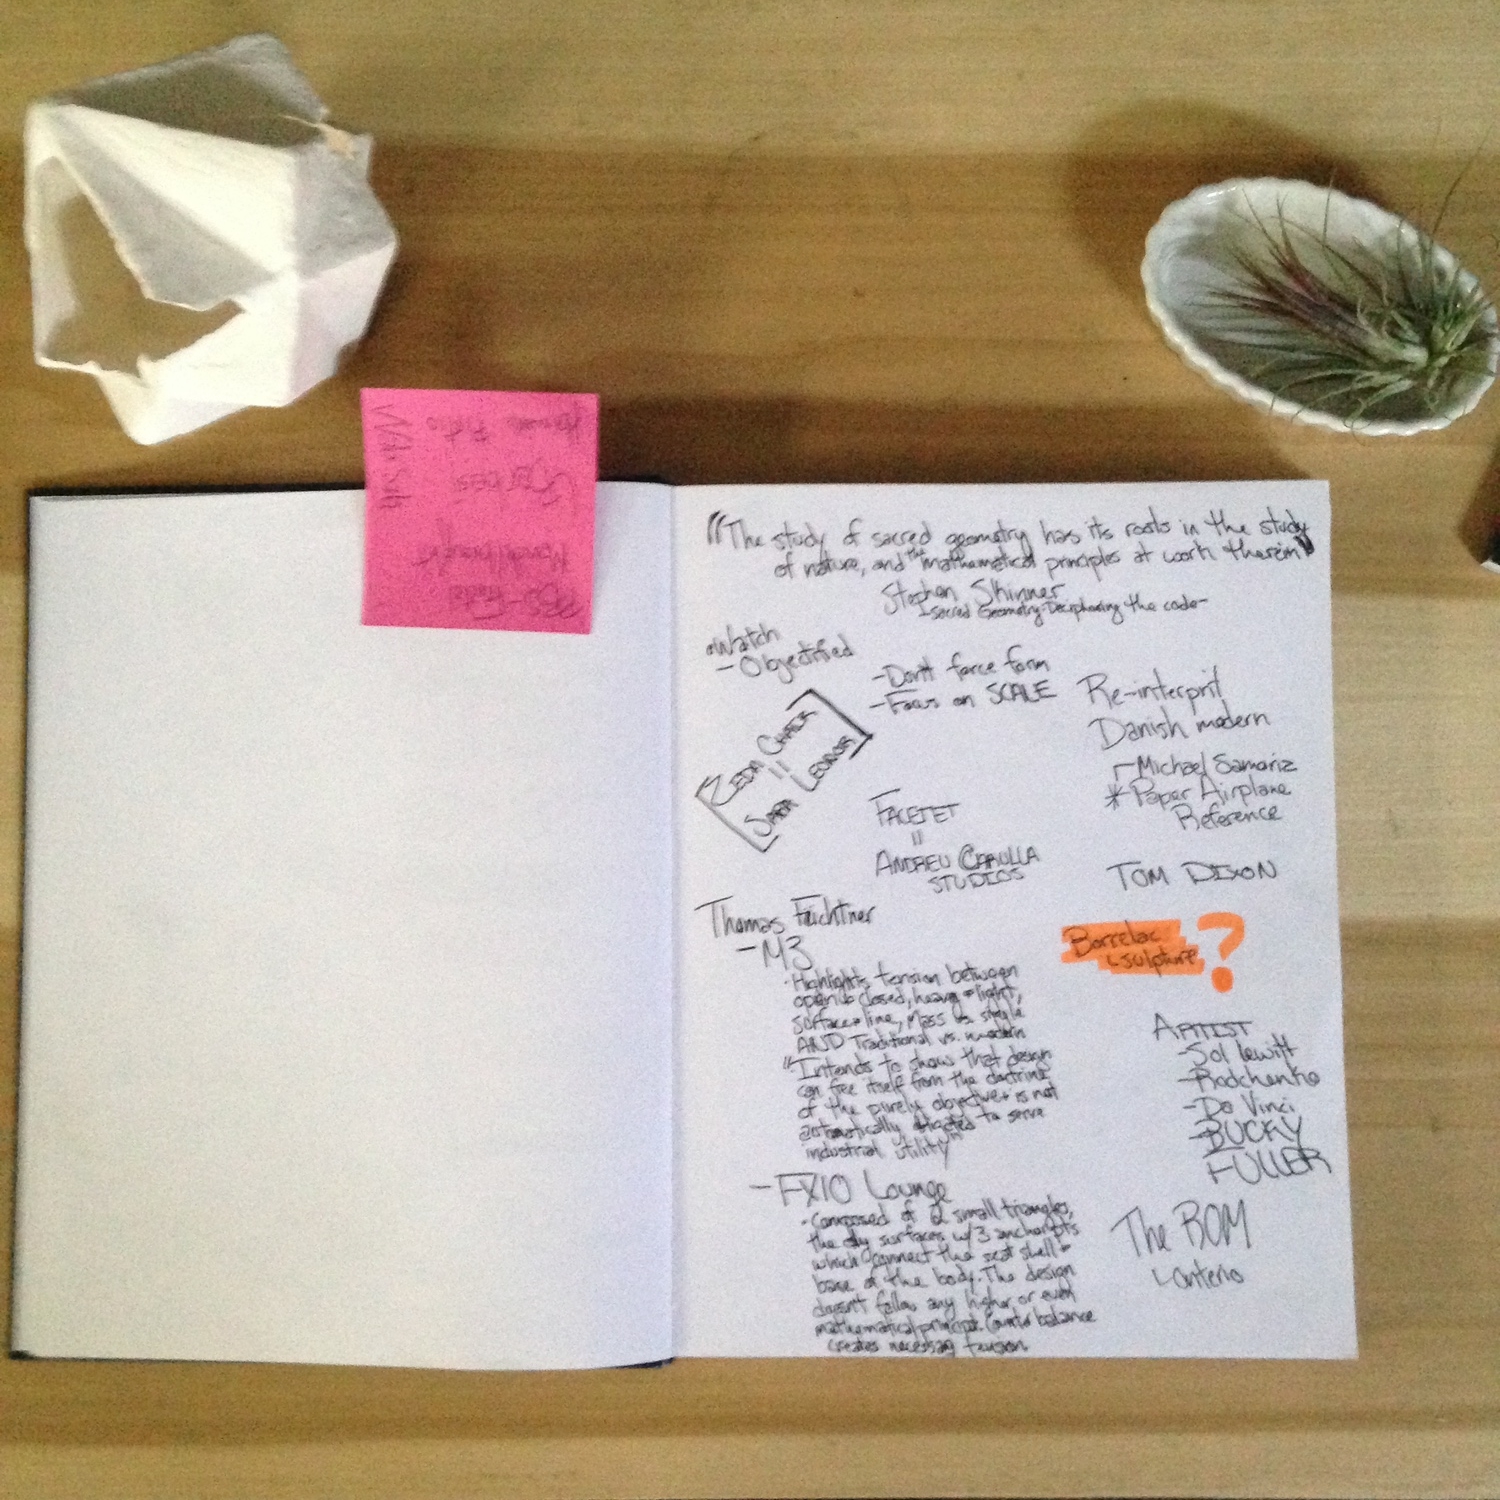 "The study of sacred geometry has its roots in the study
of nature, and the mathematical principles at work therein"
Stephen Skinner
-Sacred Geometry-Deciphering the code-
Watch
- Objectified
- Don't force form
- Focus on SCALE
Re-interprit
Danish modern
Michael Samoriz
* Paper Airplane
Reference
REDA CHAIR
=
SARA LEONOR
FACETET
=
ANDREU CARULLA
STUDIOS
TOM DIXON
Thomas Feichtner
- M3
· Highlights tension between
open & closed, heavy + light,
surface + line, Mass vs. single
AND Traditional vs. modern
"Intends to show that design
can free itself from the doctrine
of the purely objective + is not
automatically directed to serve
industrial utility"
- FX10 Lounge
· Composed of 2 small triangles,
the only surfaces w/3 anchor pts
which connect the seat shell +
base of the body. The design
doesn't follow any higher or even
mathematical principl. Counter balance
creates necessary tension
Borrelac
sculpture ?
ARTIST
- Sol Lewitt
- Rodchenko
- Da Vinci
- BUCKY
FULLER
The ROM
Onterio
PBS-Fractal
Mandelbrot